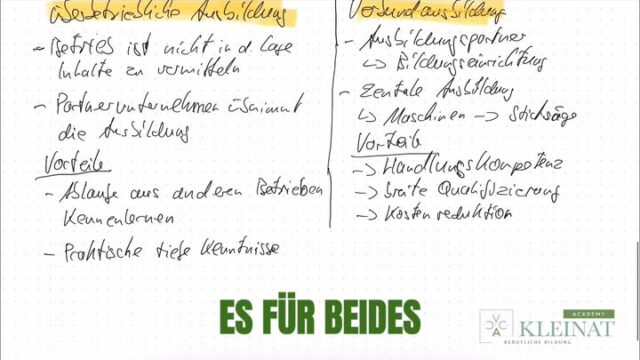 überbetriebliche Ausbildung
- Betrieb ist nicht in d. Lage
Inhalte zu vermitteln
- Partnerunternehmen übernimmt
die Ausbildung
Vorteile
- Abläufe aus anderen Betrieben
Kennenlernen
- Praktische tiefe Kenntnisse
Verbundausbildung
- Ausbildungspartner
↳ Bildungseinrichtung
- Zentrale Ausbildung
↳ Maschinen → Stichsäge
Vorteile
→ Handlungskompetenz
→ breite Qualifizierung
→ Kostenreduktion
ES FÜR BEIDES
ACADEMY
KLEINAT
BERUFLICHE BILDUNG